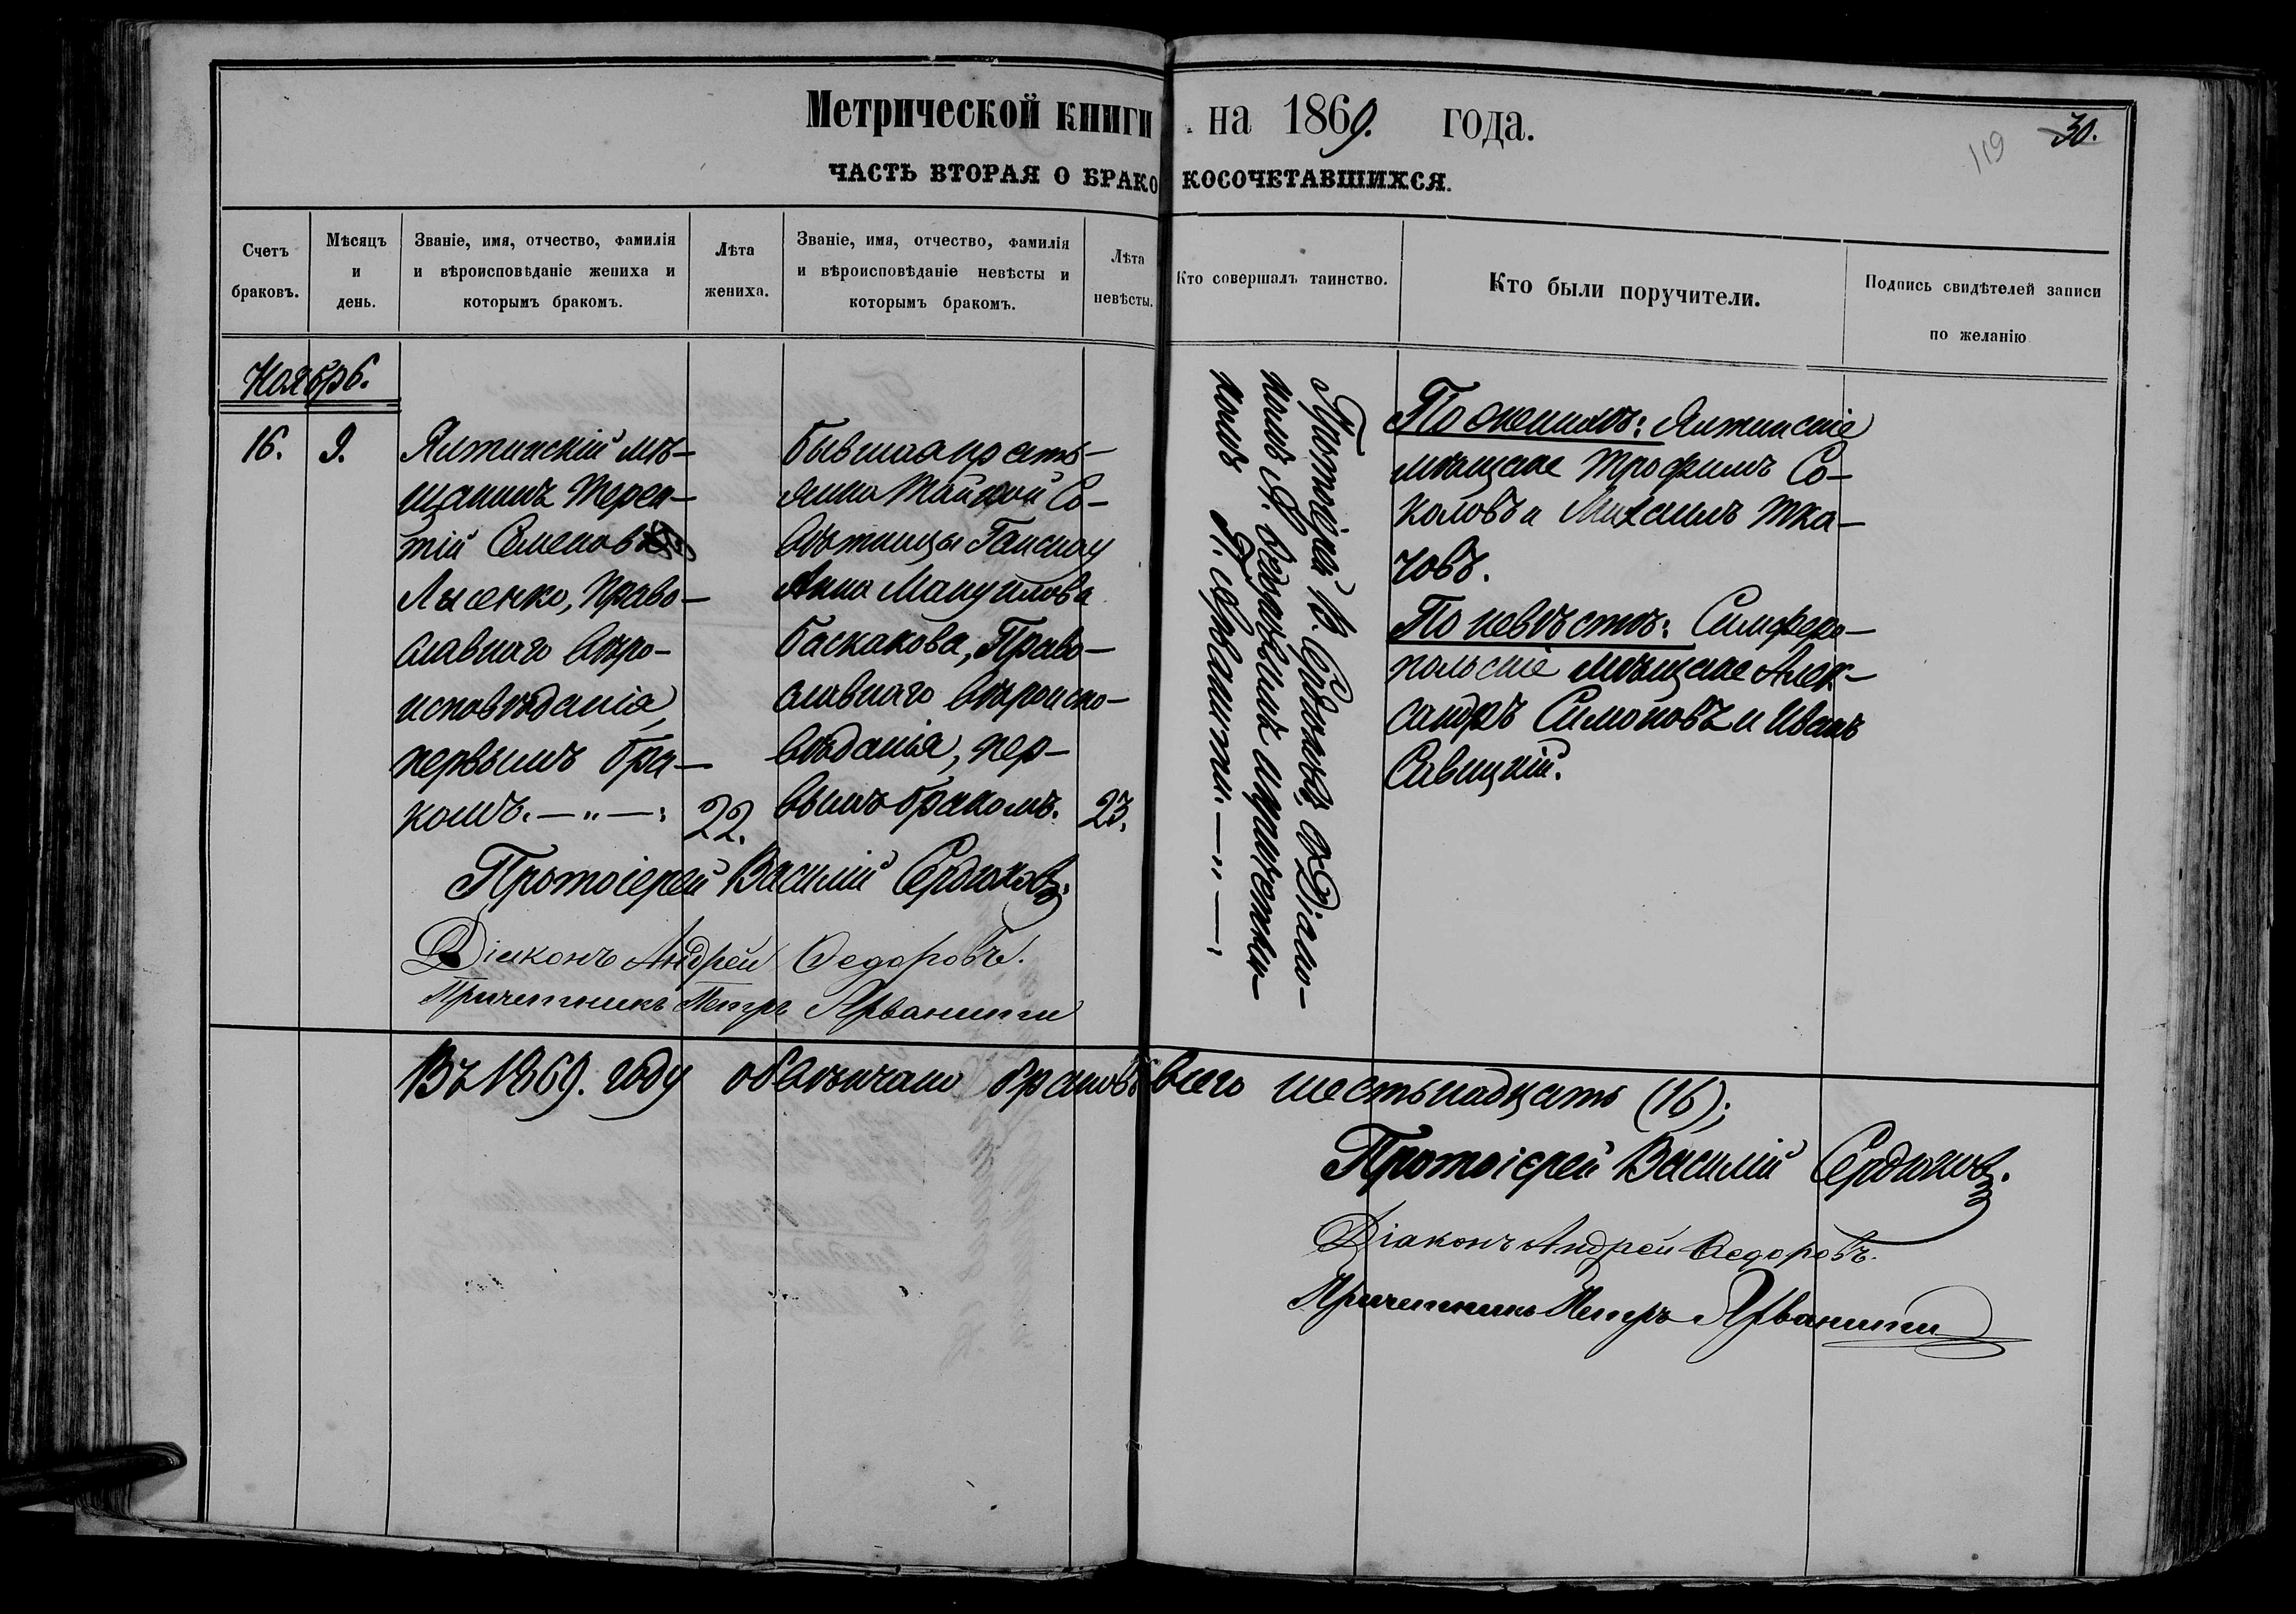 Метрической книги на 1869. года.
119
30.
ЧАСТЬ ВТОРАЯ О БРАКОКОСОЧЕТАВШИХСЯ.
Счетъ
браковъ.
Мѣсяцъ
и
день.
Званіе, имя, отчество, фамилія
и вѣроисповѣданіе жениха и
которымъ бракомъ.
Лѣта
жениха.
Званіе, имя, отчество, фамилія
и вѣроисповѣданіе невѣсты и
которымъ бракомъ.
Лѣта
невѣсты.
Кто совершалъ таинство.
Кто были поручители.
Подпись свидѣтелей записи
по желанію
Ноябрь.
16.
9.
Ялтинскій мѣ-
щанинъ Терен-
тій Семеновъ
Лысенко, право-
славнаго вѣро-
исповѣданія,
первымъ бра-
комъ. — „ — :
22.
Бывшая крѣсть-
янка Тайной Со-
вѣтницы
Анна Мануилова
Баскакова, Право-
славнаго вѣроиспо-
вѣданія, пер-
вымъ бракомъ.
23.
Протоіерей В. Сердюковъ, съ Діако-
номъ А. Ѳедоровымъ и
П. Арванити. — „ — .
По женихѣ: Ялтинскіе
мѣщане Трофимъ Со-
коловъ и Михаилъ Тка-
човъ.
По невѣстѣ: Симферо-
польскіе мѣщане Алек-
сандръ Симоновъ и Иванъ
Савицкій.
Протоіерей Василій Сердюковъ.
Діаконъ Андрей Ѳедоровъ.
Причетникъ Петръ Арванити
Въ 1869. году обвѣнчано браковъ всего шестьнадцать (16);
Протоіерей Василій Сердюковъ.
Діаконъ Андрей Ѳедоровъ.
Причетникъ Петръ Арванити